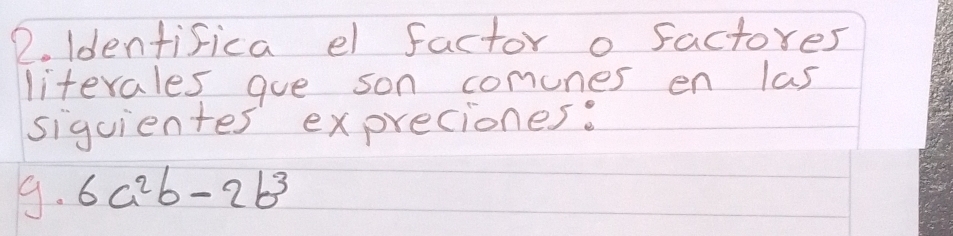 2. Identifica el factor o factores
literales que son comunes en las
siguientes expreciones:
g. 6a²b - 2b³